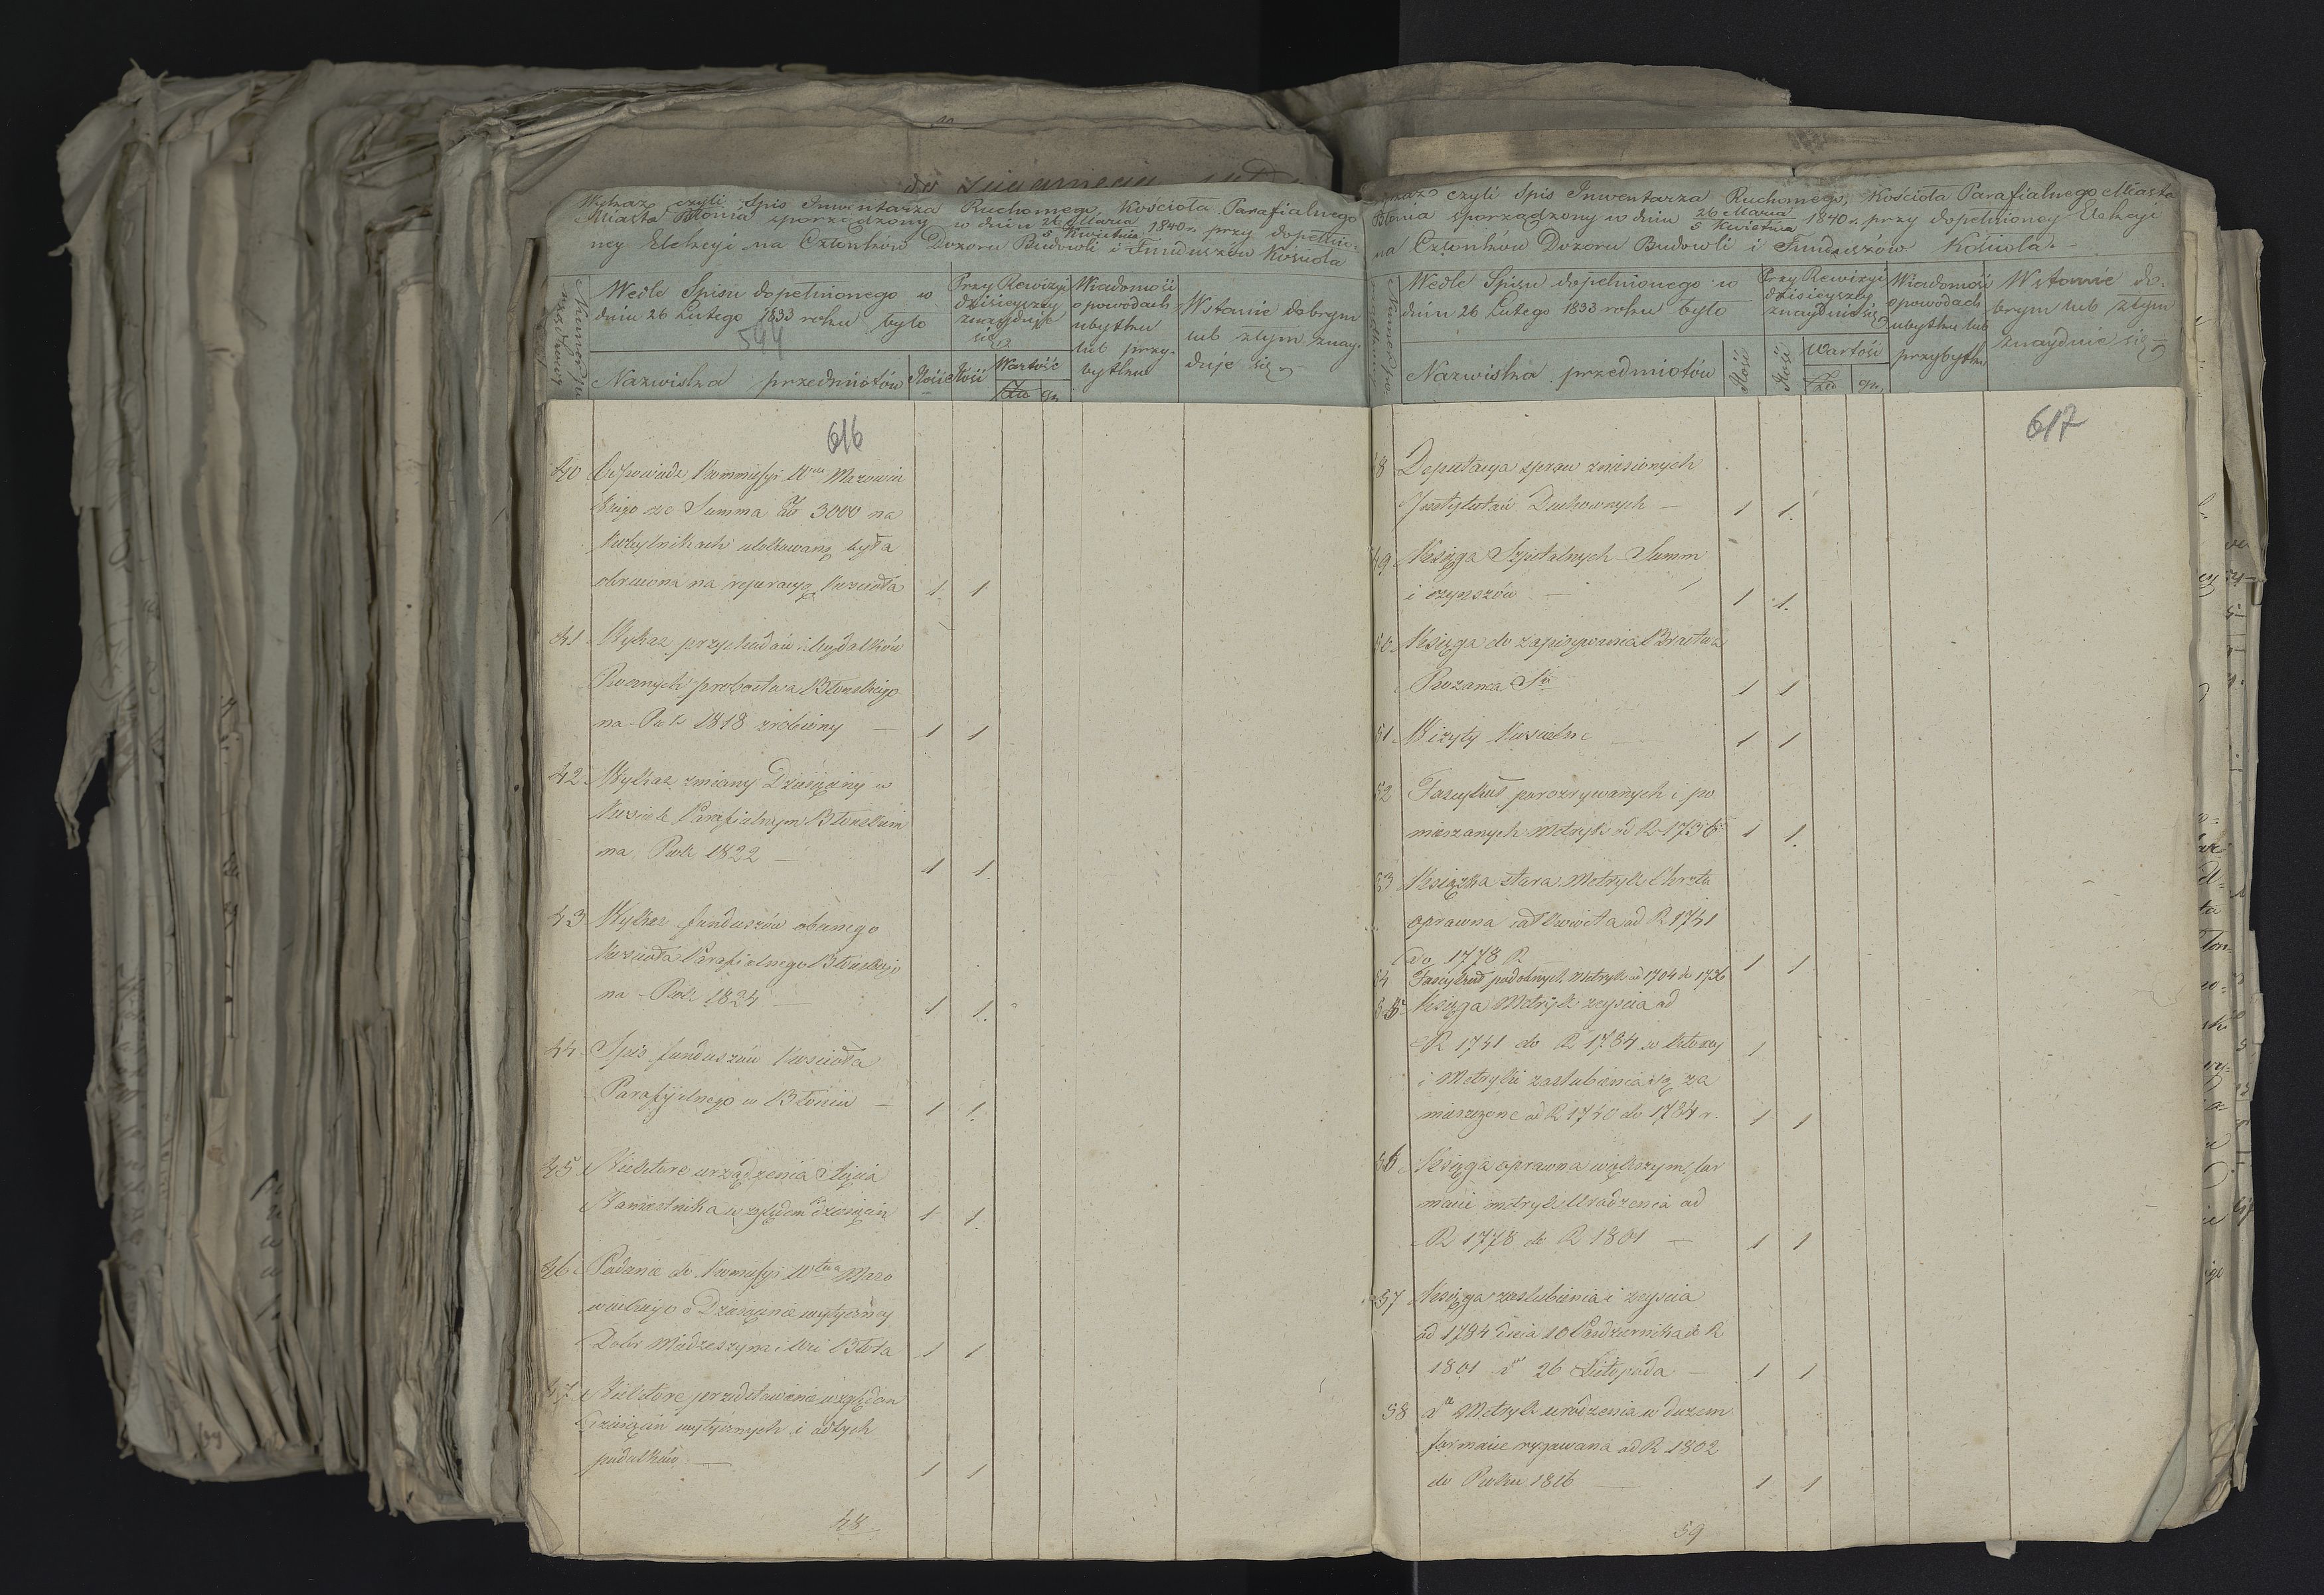 Wykaz czyli Spis Inwentarza Ruchomego, Kościoła Parafialnego
Miasta Błonia sporządzony w dniu 26 Marca / 5 Kwietnia 1840 r. przy dopełnio-
ney Elekcyi na Członków Dozoru Budowli i Funduszów Kościoła
Wedle Spisu dopełnionego w
dniu 26 Lutego 1833 roku było
544
Przy Rewizyi
dzisieyszey
znayduje
się
Wiadomość
o powodach
ubytku
lub przy-
bytku
W stanie dobrym
lub złym znay-
duje się
Nazwiska przedmiotów
Ilość
Ilość
Wartość
Złp gr.
616
40 Odpowiedz Kommissyi Wwa Mazowie
ckiego ze Summa Złp 3000 na
ulokowaną była
obrucona na reperacyą Kościoła 1. 1
41 Wykaz przychodów i Wydatków
Rocznych probostwa Błonskiego
na Rok 1818 zrobiony — 1 1
42 Wykaz zmiany Dziesięciny w
Kosciele Parafialnym Błonskim
na Rok 1822 — 1 1.
43 Wykaz funduszów obecnego
Kościoła Parafialnego Błonskiego
na Rok 1824 — 1 1.
44 Spis funduszów Kościoła
Parafyalnego w Błoniu — 1 1.
45 Niektóre urządzenia Xięcia
Namiestnika względem dziesięcin 1 1.
46 Podanie do Kommissyi Wtwa Mazo
wieckiego o Dziesięcinie wytyczney
Dobr i Wsi Błota 1 1
47 Niektóre przedstawienie względem
dziesięcin wytycznych i od tych
podatków — 1 1
48.
Wykaz czyli Spis Inwentarza Ruchomego, Kościoła Parafialnego Miasta
Błonia sporządzony w dniu 26 Marca / 5 Kwietnia 1840 r. przy dopełnioney Elekcyi
na Członków Dozoru Budowli i Funduszów Kościoła.—
Wedle Spisu dopełnionego w
dniu 26 Lutego 1833 roku było
Przy Rewizyi
dzisieyszey
znayduie się
Wiadomość
o powodach
ubytku lub
przybytku
W stanie do-
brym lub złym
znayduie się
Nazwiska przedmiotów
Ilość
Ilość
Wartość
Złp gr.
617
48 Deputacya spraw zniesionych
Jnstytutów Duchownych — 1 1.
49 Księga Szpitalnych Summ
i czynszów — 1 1.
50 Księga do zapisywania Bractwa
Rozanca Sgo 1 1
51 Wizyty Kościelne 1 1
52 Fascykuł porozrywanych i po
mieszanych Metryk od R 1736 1 1.
53 Książka stara Metryk Chrztu
oprawna całkowita od R 1741
do 1778 R 1 1
54 Fascykuł podobnych Metryk od 1704 do 1736
55 Księga Metryk zeyscia od
R 1741 do R 1784 w którey 1
i Metryki zaslubienia są za
mieszczone od R 1740 do 1784 r. 1 1
56 Księga oprawna większym for
macie metryk Urodzenia od
R 1778 do R 1801 — 1 1
57 Księga zaslubienia i zeyscia
od 1784 dnia 10 Pazdziernika do R
1801 d. 26 Listopada — 1 1
58 dto Metryk urodzenia w duzem
formacie rygowana od R 1802
do Roku 1816 — 1 1
59